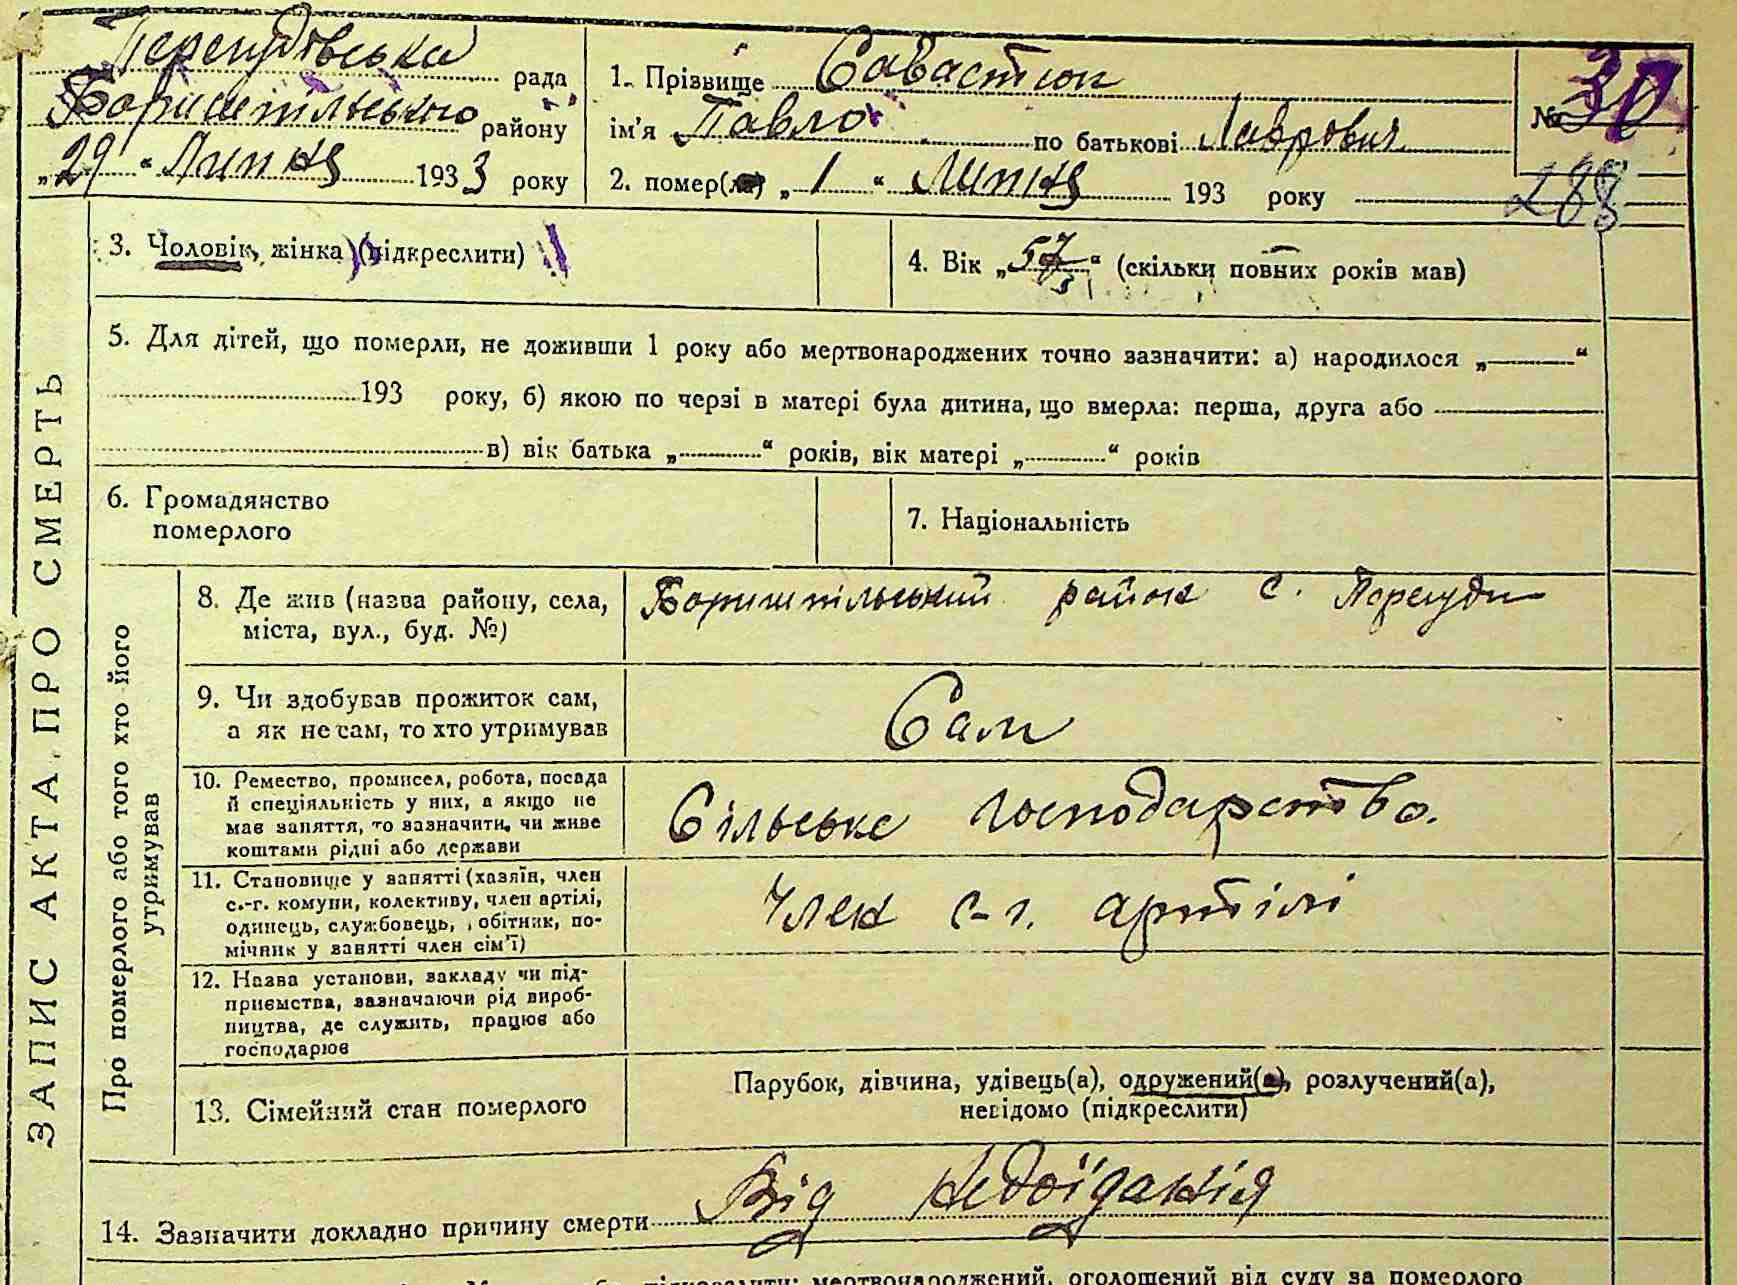 Перегудівська рада
Бориспільського району
„29" Липня 1933 року
1. Прізвище Савастюк
ім'я Павло по батькові Лаврович
2. помер(ла) „1" Липня 193 року
№ 30
288
ЗАПИС АКТА ПРО СМЕРТЬ
3. Чоловік, жінка (підкреслити)
4. Вік „57" (скільки повних років мав)
5. Для дітей, що померли, не доживши 1 року або мертвонароджених точно зазначити: а) народилося „ "
193 року, б) якою по черзі в матері була дитина, що вмерла: перша, друга або
в) вік батька „ " років, вік матері „ " років
6. Громадянство
померлого
7. Національність
Про померлого або того хто його
утримував
8. Де жив (назва району, села,
міста, вул., буд. №)
Бориспільський район с. Перегуди
9. Чи здобував прожиток сам,
а як не сам, то хто утримував
Сам
10. Ремество, промисел, робота, посада
й спеціяльність у них, а якщо не
мав заняття, то зазначити, чи живе
коштами рідні або держави
Сільське господарство.
11. Становище у занятті (хазяїн, член
с.-г. комуни, колективу, член артілі,
одинець, службовець, обітник, по-
мічник у занятті член сім'ї)
Член с-г. артілі
12. Назва установи, закладу чи під-
приємства, зазначаючи рід вироб-
ництва, де служить, працює або
господарює
13. Сімейний стан померлого
Парубок, дівчина, удівець(а), одружений(а), розлучений(а),
невідомо (підкреслити)
14. Зазначити докладно причину смерти Від недоїданія
мертвонароджений, оголошений від суду за померлого